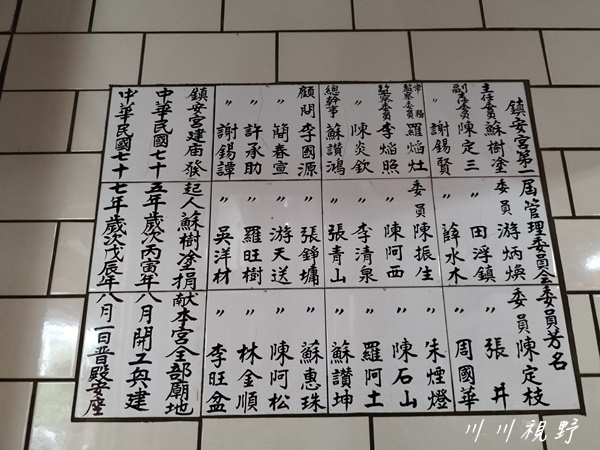 鎮安宮第一屆管理委員会委員芳名
主任委員 蘇樹塗 委員 游炳煥 委員 陳定枝
副主任委員 陳定三 〃 田浮鎮 〃 張井
〃 謝錫賢 〃 薛水木 〃 周國華
常務監察委員 羅焰灶 委員 陳振生 〃 朱煙燈
監察委員 李焰照 〃 陳阿西 〃 陳石山
〃 陳炎欽 〃 李清泉 〃 羅阿土
總幹事 蘇讚鴻 〃 張青山 〃 蘇讚坤
顧問 李國源 〃 張錚墉 〃 蘇惠珠
〃 簡春宣 〃 游天送 〃 陳阿松
〃 許承助 〃 羅旺樹 〃 林金順
〃 謝錫譚 〃 吳洋材 〃 李旺盆
鎮安宮建庙發起人蘇樹塗捐献本宮全部廟地
中華民國七十五年歲次丙寅年八月開工興建
中華民國七十七年歲次戊辰年八月一日晋殿安座
川川視野